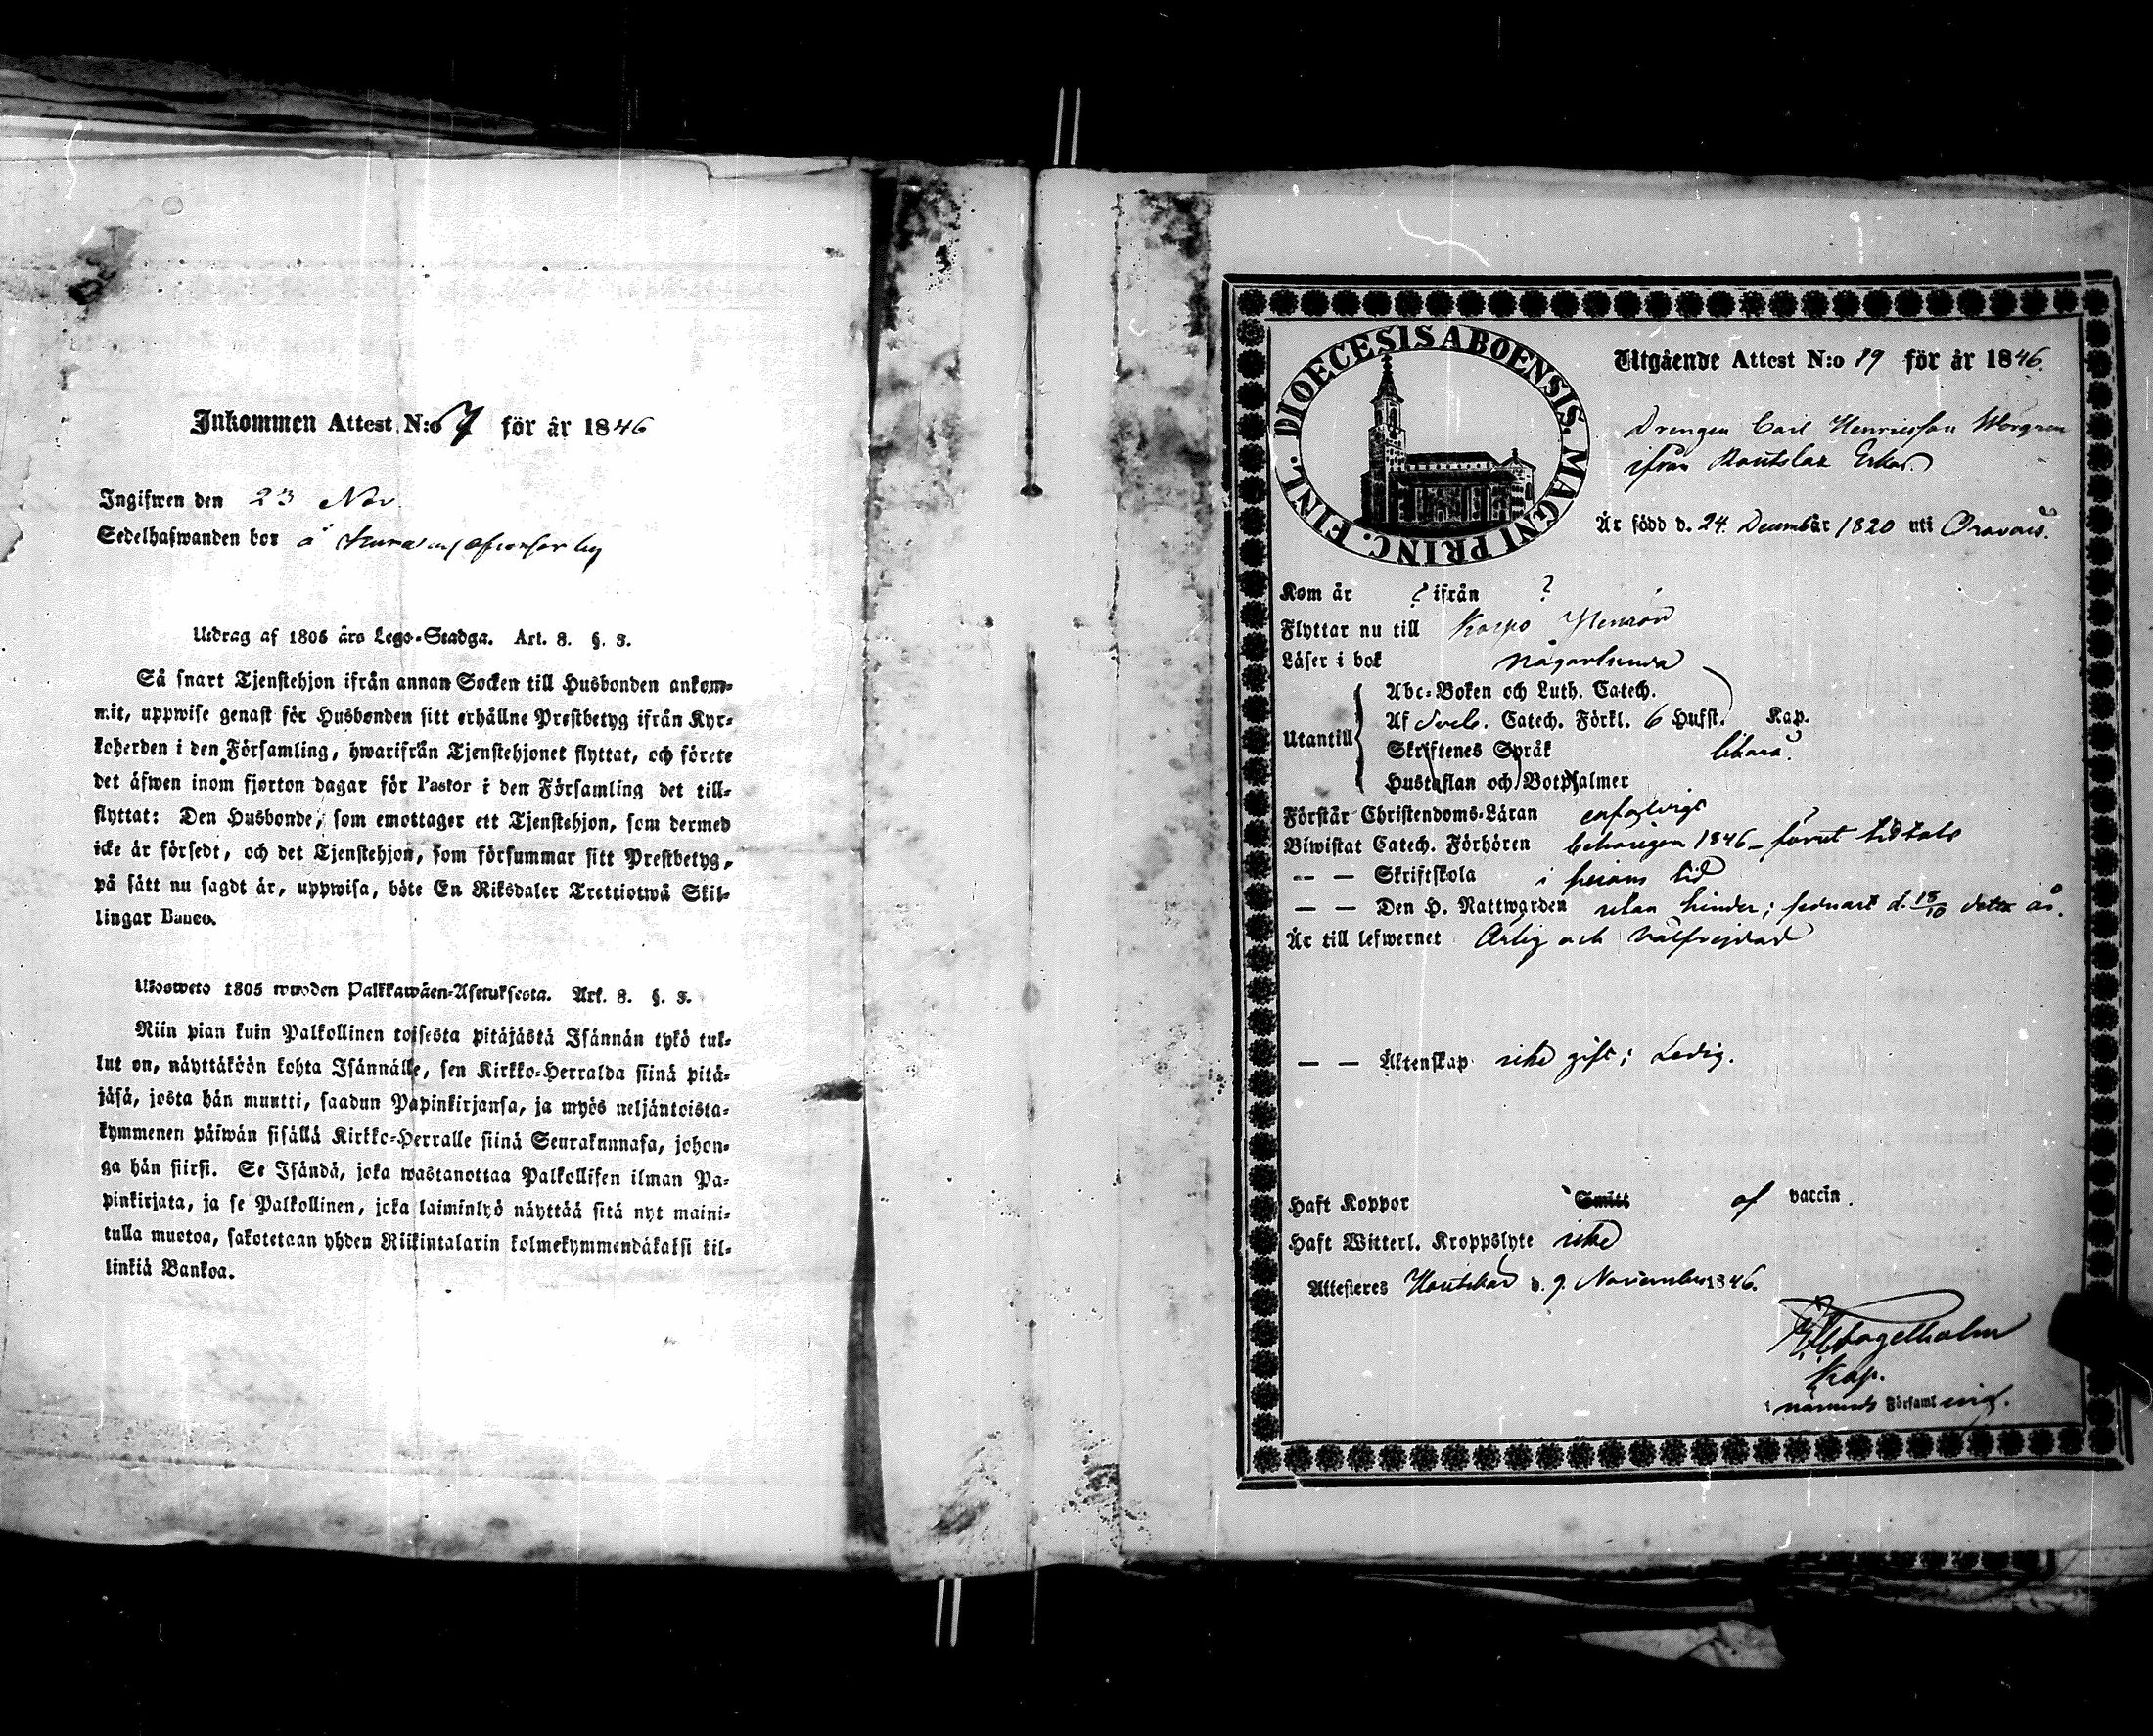 Inkommen Attest N:o 7 för år 1846
Ingifwen den 23 Nov.
Sedelhafwanden bor å
Utdrag af 1805 års Lego-Stadga. Art. 8. §. 3.
Så snart Tjenstehjon ifrån annan Socken till Husbonden ankom-
mit, uppwise genast för Husbonden sitt erhållne Prestbetyg ifrån Kyr-
koherden i den Församling, hwarifrån Tjenstehjonet flyttat, och förete
det äfwen inom fjorton dagar för Pastor i den Församling det till-
flyttat: Den Husbonde, som emottager ett Tjenstehjon, som dermed
icke är försedt, och det Tjenstehjon, som försummar sitt Prestbetyg,
på sätt nu sagdt är, uppwisa, böte En Riksdaler Trettiotwå Skil-
lingar Banco.
Ulosweto 1805 wuoden Palkkawäen-Asetuksesta. Art. 8. §. 3.
Niin pian kuin Palkollinen toisesta pitäjästä Isännän tykö tul-
lut on, näyttäköön kohta Isännälle, sen Kirkko-Herralda siinä pitä-
jäsä, josta hän muutti, saadun Papinkirjansa, ja myös neljäntoista-
kymmenen päiwän sisällä Kirkko-Herralle siinä Seurakunnasa, johon-
ga hän siirsi. Se Isändä, joka wastanottaa Palkollisen ilman Pa-
pinkirjata, ja se Palkollinen, joka laiminlyö näyttää sitä nyt maini-
tulla muotoa, sakotetaan yhden Riikintalarin kolmekymmendäkaksi kil-
linkiä Bankoa.
DIOECESIS ABOENSIS. MAGNI PRINC. FINL.
Utgående Attest N:o 19 för år 1846.
Drengen Carl Henricsson
ifrån
Är född d. 24 December 1820 uti Oravais.
Kom år ? ifrån ?
Flyttar nu till Korpo
Läser i bok någorlunda
Utantill
Abc-Boken och Luth. Catech.
Af Sveb. Catech. Förkl. 6 Hufst. Kap.
Skriftenes Språk likaså.
Hustaflan och Botpsalmer
Förstår Christendoms-Läran enfaldigt
Biwistat Catech. Förhören behörigen 1846 - förut
— — Skriftskola i sinom tid
— — Den H. Nattwarden utan hinder; sednast d. 18/10 detta år.
Är till lefwernet Ärlig och välfrejdad
— — Äktenskap icke gift; Ledig.
Haft Koppor Smitt af vaccin.
Haft Witterl. Kroppslyte icke
Attesteras Houtskär d. 9. November 1846.
Fagelholm
Kap.
i nämnde Församling.